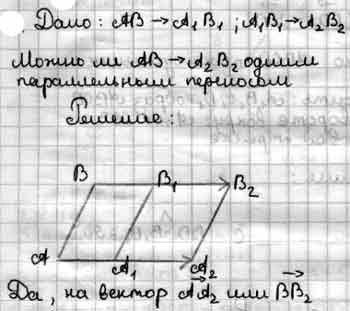 Дано: AB → A₁B₁ ; A₁B₁ → A₂B₂
Можно ли AB → A₂B₂ одним
параллельным переносом
Решение:
B B₁ B₂
A A₁ A₂
Да, на вектор A⃗A₂ или B⃗B₂